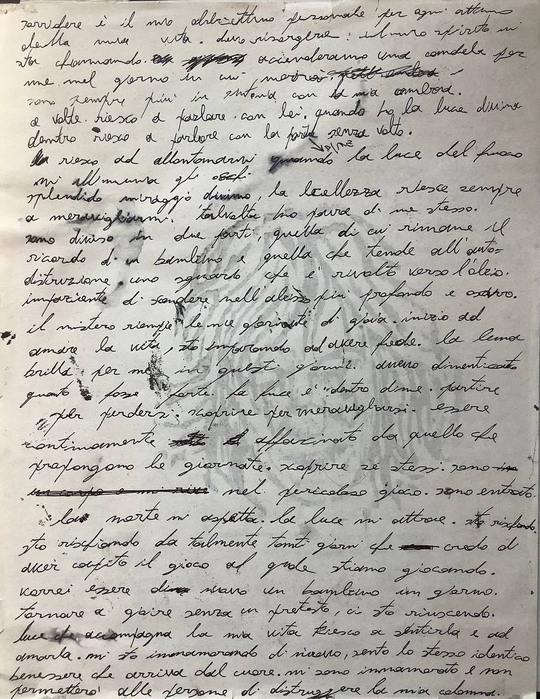 sorridere è il mio obiettivo personale per ogni attimo
della mia vita devo risorgere. il mio spirito mi
sta chiamando. accenderanno una candela per
me nel giorno in cui
sono sempre più in sintonia con la mia ombra.
a volte riesco a parlare con lei. quando ho la luce divina
dentro riesco a parlare con la parte senza volto.
riesco ad allontanarmi quando la luce del fuoco
mi illumina gl
splendido miraggio divino, la bellezza riesce sempre
a meravigliarmi. talvolta ho paura di me stesso.
sono diviso in due parti, quella di cui rimane il
ricordo di un bambino e quella che tende all'auto-
distruzione. uno sguardo che è rivolto verso l'alto.
impaziente di scendere nell'abisso più profondo e oscuro.
il mistero riempie le mie giornate di gioia. inizio ad
amare la vita, sto imparando ad avere fede. la luna
brilla per me in questi giorni. avevo dimenticato
quanto fosse forte. la luce è dentro di me. partire
per perdersi. scoprire per meravigliarsi. essere
continuamente affascinato da quello che
propongono le giornate. scoprire se stessi. sono
nel pericoloso gioco. sono entrato.
la morte mi aspetta. la luce mi attrae. sto rischiando.
sto rischiando da talmente tanti giorni che credo di
aver capito il gioco al quale stiamo giocando.
vorrei essere di nuovo un bambino un giorno.
tornare a gioire senza un pretesto, ci sto riuscendo.
luce che accompagna la mia vita riesco a sentirla e ad
amarla. mi sto innamorando di nuovo, sento lo stesso identico
benessere che arriva dal cuore. mi sono innamorato e non
permetterò alle persone di distruggere la mia calma.